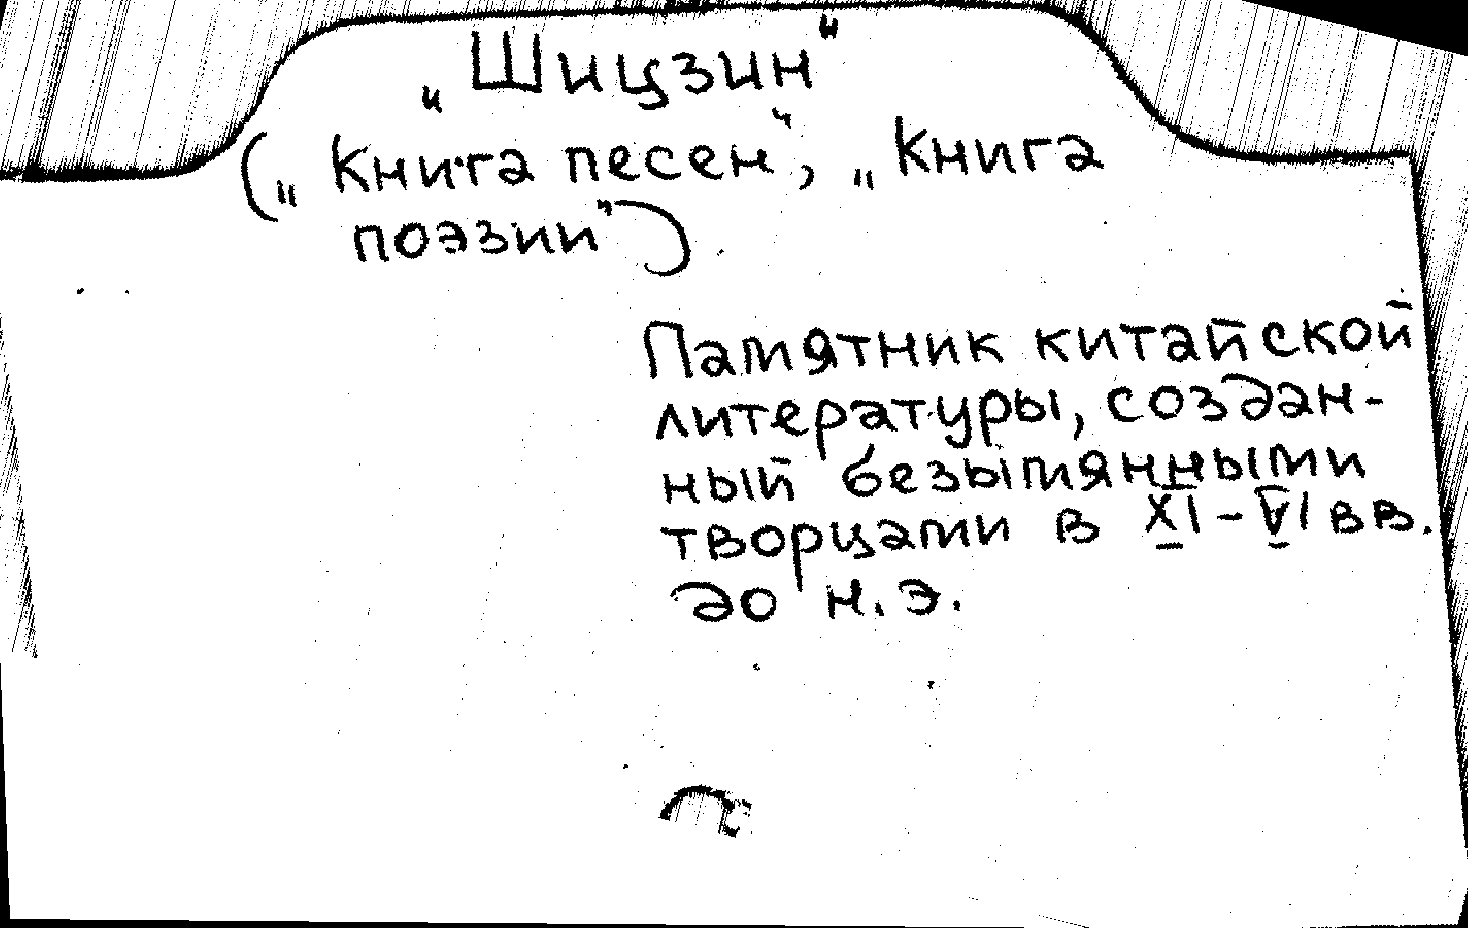 „Шицзин"
(„Книга песен", „Книга
поэзии")
Памятник китайской
литературы, создан-
ный безымянными
творцами в XI-VI вв.
до н.э.